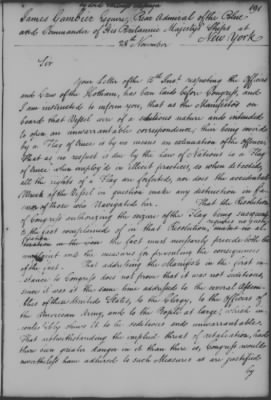 191
James Gambier Esquire, Rear Admiral of the Blue
and Commander of His Britannic Majestys Ships at
New York
28 November
Sir
Your Letter of the 15th Inst. respecting the Officers
and Crew of the Hotham, has been laid before Congress, and
I am instructed to inform you, that as the Manifestos on
board that Vessel were of a seditious nature and intended
to open an unwarrantable correspondence, their being covered
by a Flag of truce is by no means an extenuation of the offence
That as no respect is due by the Law of Nations to a Flag
of truce when employ'd in illicit practices, as when detected,
all the rights of a Flag are forfeited, so does the accidental
Wreck of the Vessel in question make any distinction in fa-
vor of those who Navigated her. That the Resolution
of Congress authorising the seizure of the Flag being
the fact complained of in that Resolution, makes no al-
in the case the fact must uniformly precede both the
and the measures for preventing the consequences
of the fact. That addressing the Manifesto in the first in-
stance to Congress does not prove that it was not seditious,
since it was at the same time addressed to the several Assem-
blies of these United States, to the Clergy, to the Officers of
the American Army, and to the People at large; which in-
contestibly shews it to be seditious and unwarrantable.
That notwithstanding the implied threat of retaliation, had
their own greater danger in it than there is, Congress would
nevertheless have adhered to such Measures as are justified
by